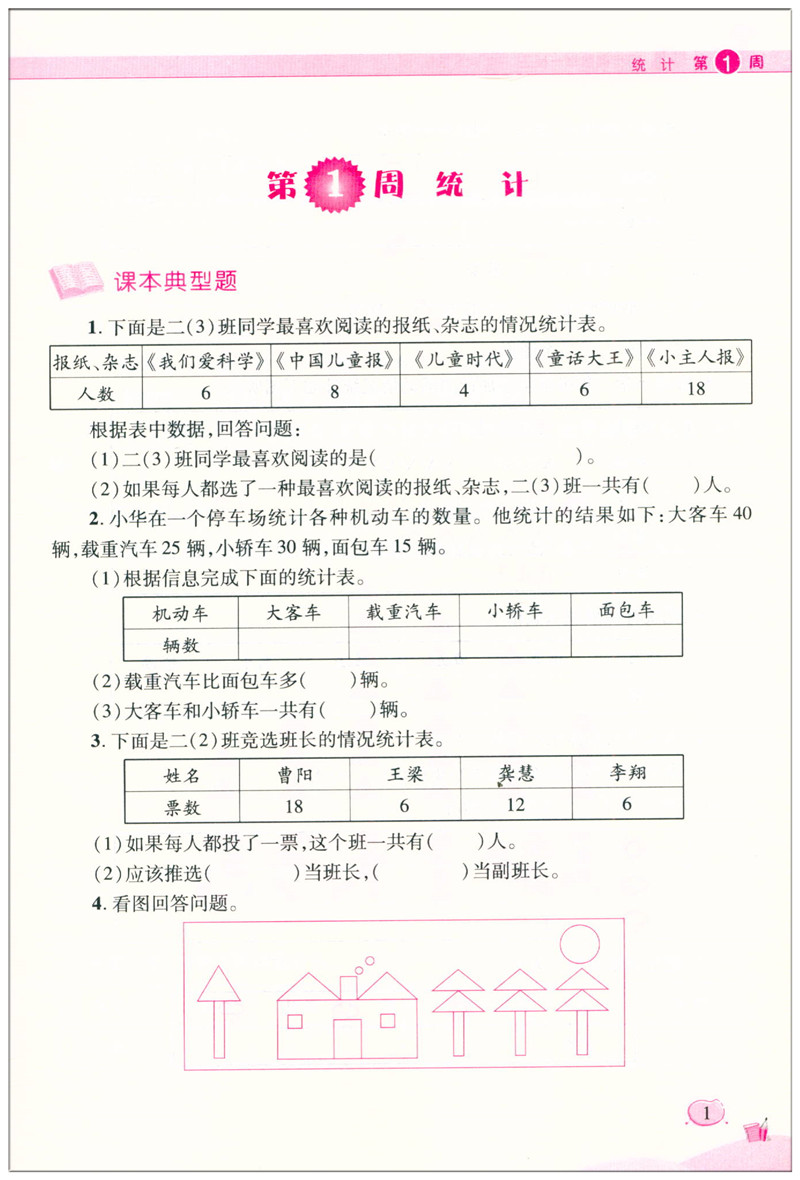 统 计 第1周
第1周 统 计
课本典型题
1. 下面是二(3)班同学最喜欢阅读的报纸、杂志的情况统计表。
报纸、杂志 《我们爱科学》 《中国儿童报》 《儿童时代》 《童话大王》 《小主人报》
人数 6 8 4 6 18
根据表中数据,回答问题:
(1)二(3)班同学最喜欢阅读的是( )。
(2)如果每人都选了一种最喜欢阅读的报纸、杂志,二(3)班一共有( )人。
2. 小华在一个停车场统计各种机动车的数量。他统计的结果如下:大客车 40
辆,载重汽车 25 辆,小轿车 30 辆,面包车 15 辆。
(1)根据信息完成下面的统计表。
机动车 大客车 载重汽车 小轿车 面包车
辆数
(2)载重汽车比面包车多( )辆。
(3)大客车和小轿车一共有( )辆。
3. 下面是二(2)班竞选班长的情况统计表。
姓名 曹阳 王梁 龚慧 李翔
票数 18 6 12 6
(1)如果每人都投了一票,这个班一共有( )人。
(2)应该推选( )当班长,( )当副班长。
4. 看图回答问题。
1